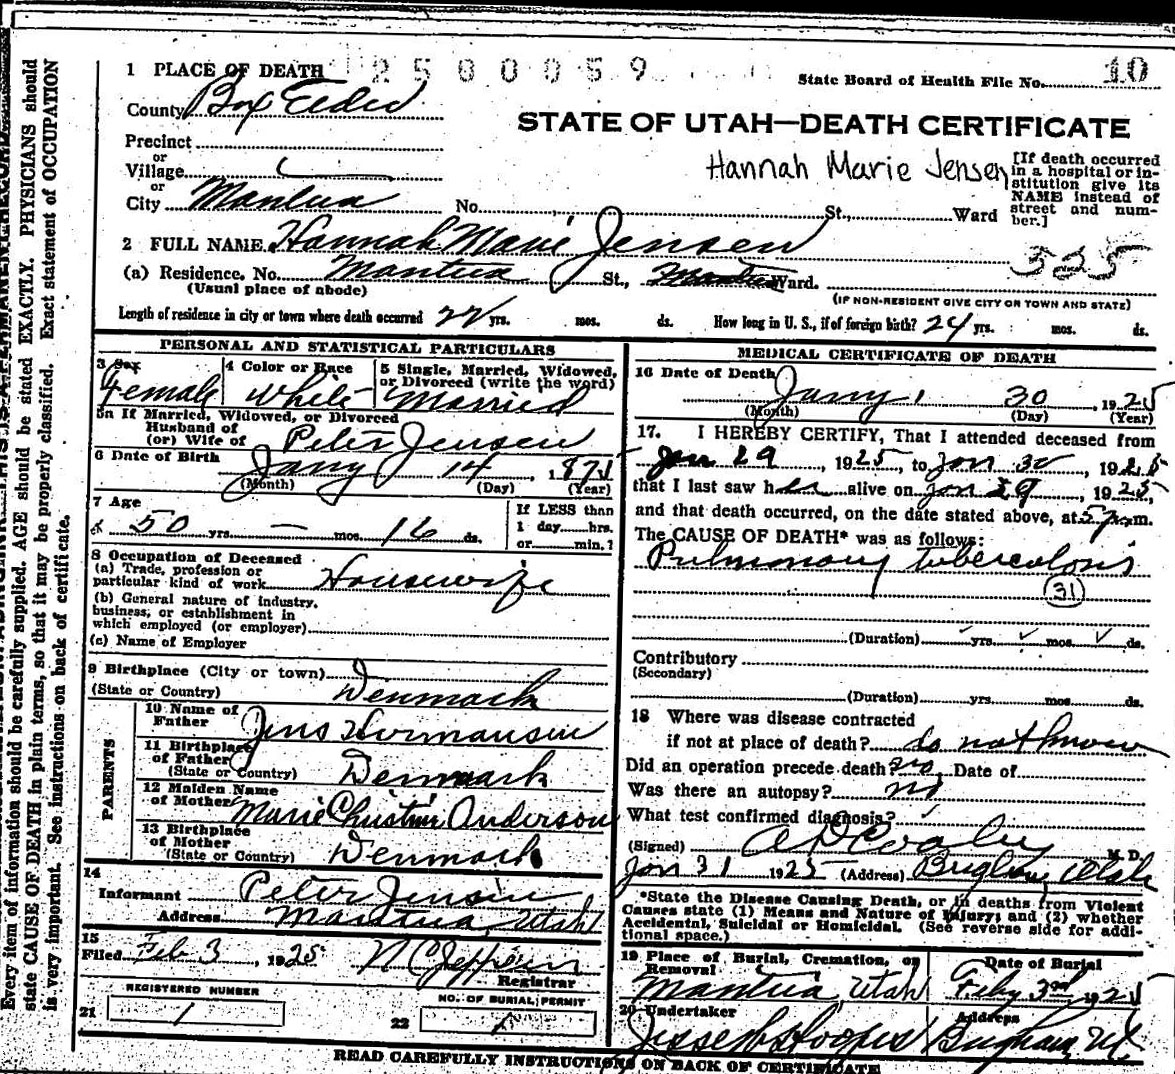 1 PLACE OF DEATH 2500059 State Board of Health File No. 10
County Box Elder
STATE OF UTAH—DEATH CERTIFICATE
Precinct
or
Village
or
City Mantua No. St., Ward
Hannah Marie Jensen
[If death occurred in a hospital or institution give its NAME instead of street and number.]
2 FULL NAME Hannah Marie Jensen
325
(a) Residence. No. Mantua St., Mantua Ward.
(Usual place of abode) (IF NON-RESIDENT GIVE CITY OR TOWN AND STATE)
Length of residence in city or town where death occurred 22 yrs. mos. ds. How long in U. S., if of foreign birth? 24 yrs. mos. ds.
PERSONAL AND STATISTICAL PARTICULARS
3 Sex Female
4 Color or Race White
5 Single, Married, Widowed, or Divorced (write the word) Married
5a If Married, Widowed, or Divorced
Husband of
(or) Wife of Peter Jensen
6 Date of Birth Jany 14 1875
(Month) (Day) (Year)
7 Age
50 yrs. — mos. 16 ds.
If LESS than
1 day hrs.
or min.?
8 Occupation of Deceased
(a) Trade, profession or
particular kind of work Housewife
(b) General nature of industry,
business, or establishment in
which employed (or employer)
(c) Name of Employer
9 Birthplace (City or town)
(State or Country) Denmark
PARENTS
10 Name of Father Jens Hermansen
11 Birthplace of Father
(State or Country) Denmark
12 Maiden Name of Mother Marie Christine Anderson
13 Birthplace of Mother
(State or Country) Denmark
14
Informant Peter Jensen
Address Mantua, Utah
15
Filed Feb 3, 1925 N C Jeppsen
Registrar
REGISTERED NUMBER
21 1
NO. OF BURIAL PERMIT
22 1
MEDICAL CERTIFICATE OF DEATH
16 Date of Death Jany, 30, 1925
(Month) (Day) (Year)
17. I HEREBY CERTIFY, That I attended deceased from
Jan 29, 1925, to Jan 30, 1925
that I last saw her alive on Jan 29, 1925,
and that death occurred, on the date stated above, at 5 p.m.
The CAUSE OF DEATH* was as follows:
Pulmonary tuberculosis
31
(Duration) yrs. mos. ds.
Contributory
(Secondary)
(Duration) yrs. mos. ds.
18 Where was disease contracted
if not at place of death? do not know
Did an operation precede death? no, Date of
Was there an autopsy? no
What test confirmed diagnosis?
(Signed) A D Cooley M. D.
Jan 31 1925 (Address) Brigham, Utah
*State the Disease Causing Death, or in deaths from Violent
Causes state (1) Means and Nature of Injury; and (2) whether
Accidental, Suicidal or Homicidal. (See reverse side for addi-
tional space.)
19 Place of Burial, Cremation, or Removal Mantua, Utah
Date of Burial Feby 3rd, 1925
20 Undertaker Jesse W Hoopes
Address Brigham, Ut.
READ CAREFULLY INSTRUCTIONS ON BACK OF CERTIFICATE
Every item of information should be carefully supplied. AGE should be stated EXACTLY. PHYSICIANS should
state CAUSE OF DEATH in plain terms, so that it may be properly classified. Exact statement of OCCUPATION
is very important. See instructions on back of certificate.